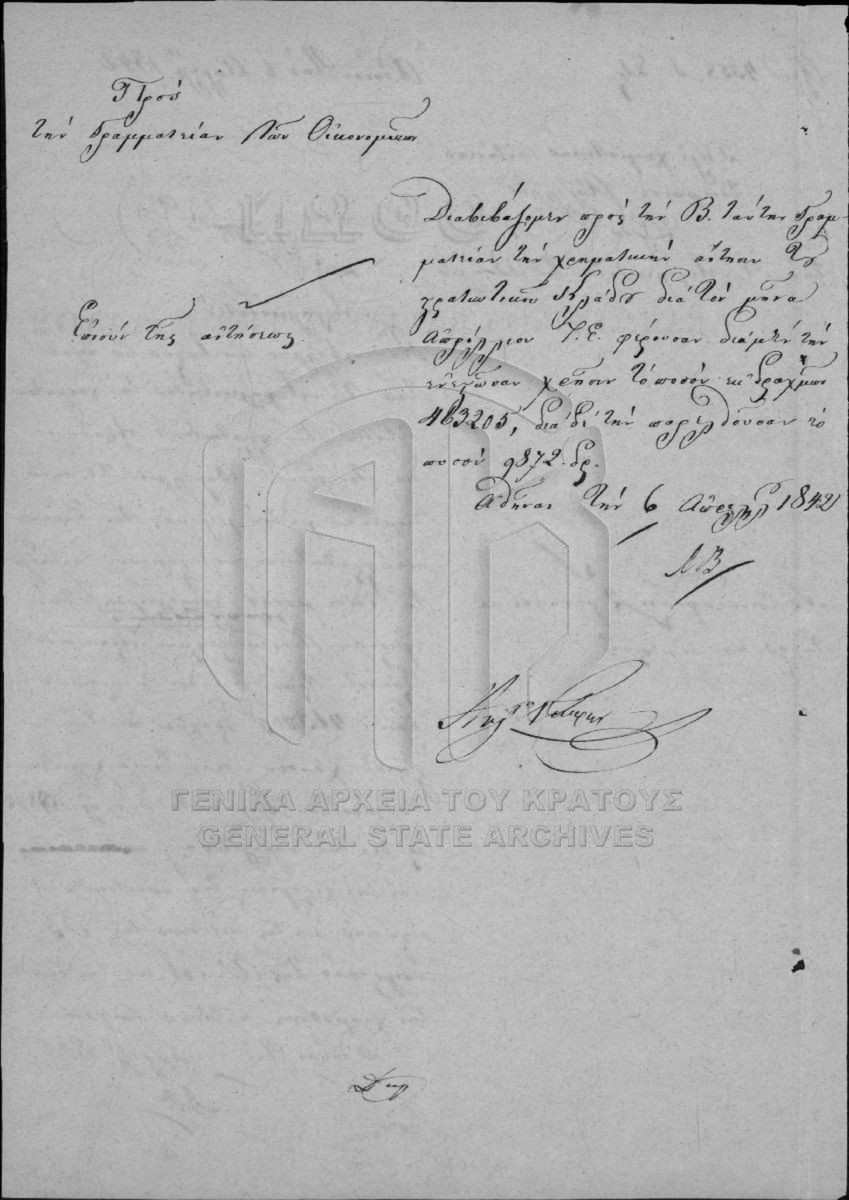 Πρὸς
τὴν Γραμματείαν τῶν Οἰκονομικῶν
Διαβιβάζομεν πρὸς τὴν Β. ταύτην Γραμ-
ματείαν τὴν χρηματικὴν αἴτησιν τȣ͂
στρατιωτικοῦ Κλάδȣ διὰ τὸν μῆνα
Ἀπρίλλιον Ἰ. Ε. φέρουσαν διὰ μὲν τὴν
ἐνεστῶσαν χρῆσιν τὸ ποσὸν ἐκ δραχμῶν
463205, διὰ δὲ τὴν παρελθοῦσαν τὸ
ποσὸν 9872 δρ.
Ἀθῆναι τὴν 6 Ἀπριλλ 1842
τῆς αἰτήσεως
ΓΕΝΙΚΑ ΑΡΧΕΙΑ ΤΟΥ ΚΡΑΤΟΥΣ
GENERAL STATE ARCHIVES